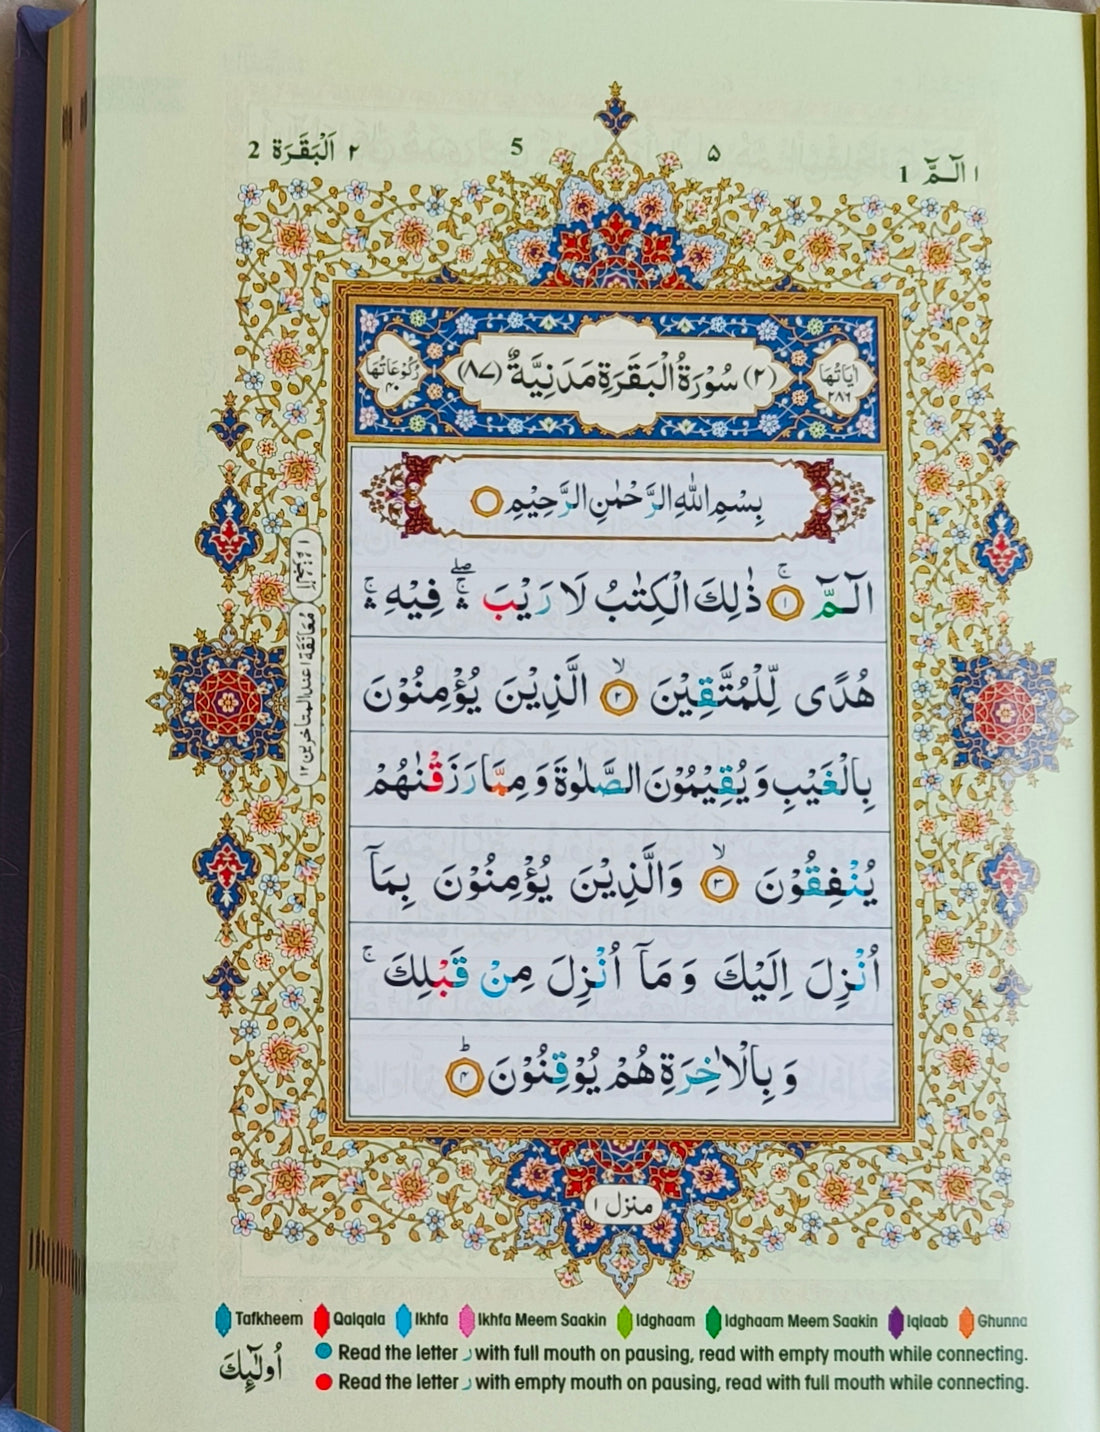 ٢ اَلْبَقَرَة 2
5
۵
١ الٓـمّٓ 1
رُكُوْعَاتُهَا ۴۰
(۲) سُوْرَةُ الْبَقَرَةِ مَدَنِيَّةٌ (۸۷)
اٰيَاتُهَا ۲۸۶
بِسْمِ اللّٰهِ الرَّحْمٰنِ الرَّحِيْمِ
الٓـمّٓ ۚ ۝١ ذٰلِكَ الْكِتٰبُ لَا رَيْبَ ۛۖ فِيْهِ ۛۚ
هُدًى لِّلْمُتَّقِيْنَ ۙ ۝٢ الَّذِيْنَ يُؤْمِنُوْنَ
بِالْغَيْبِ وَ يُقِيْمُوْنَ الصَّلٰوةَ وَ مِمَّا رَزَقْنٰهُمْ
يُنْفِقُوْنَ ۙ ۝٣ وَالَّذِيْنَ يُؤْمِنُوْنَ بِمَاۤ
اُنْزِلَ اِلَيْكَ وَ مَاۤ اُنْزِلَ مِنْ قَبْلِكَ ۚ
وَ بِالْاٰخِرَةِ هُمْ يُوْقِنُوْنَ ؕ ۝۴
مُعَانَقَة ۱ عند المتاخرين ۱۲
منزل ١
Tafkheem Qalqala Ikhfa Ikhfa Meem Saakin Idghaam Idghaam Meem Saakin Iqlaab Ghunna
اُولٰٓئِكَ
Read the letter ر with full mouth on pausing, read with empty mouth while connecting.
Read the letter ر with empty mouth on pausing, read with full mouth while connecting.